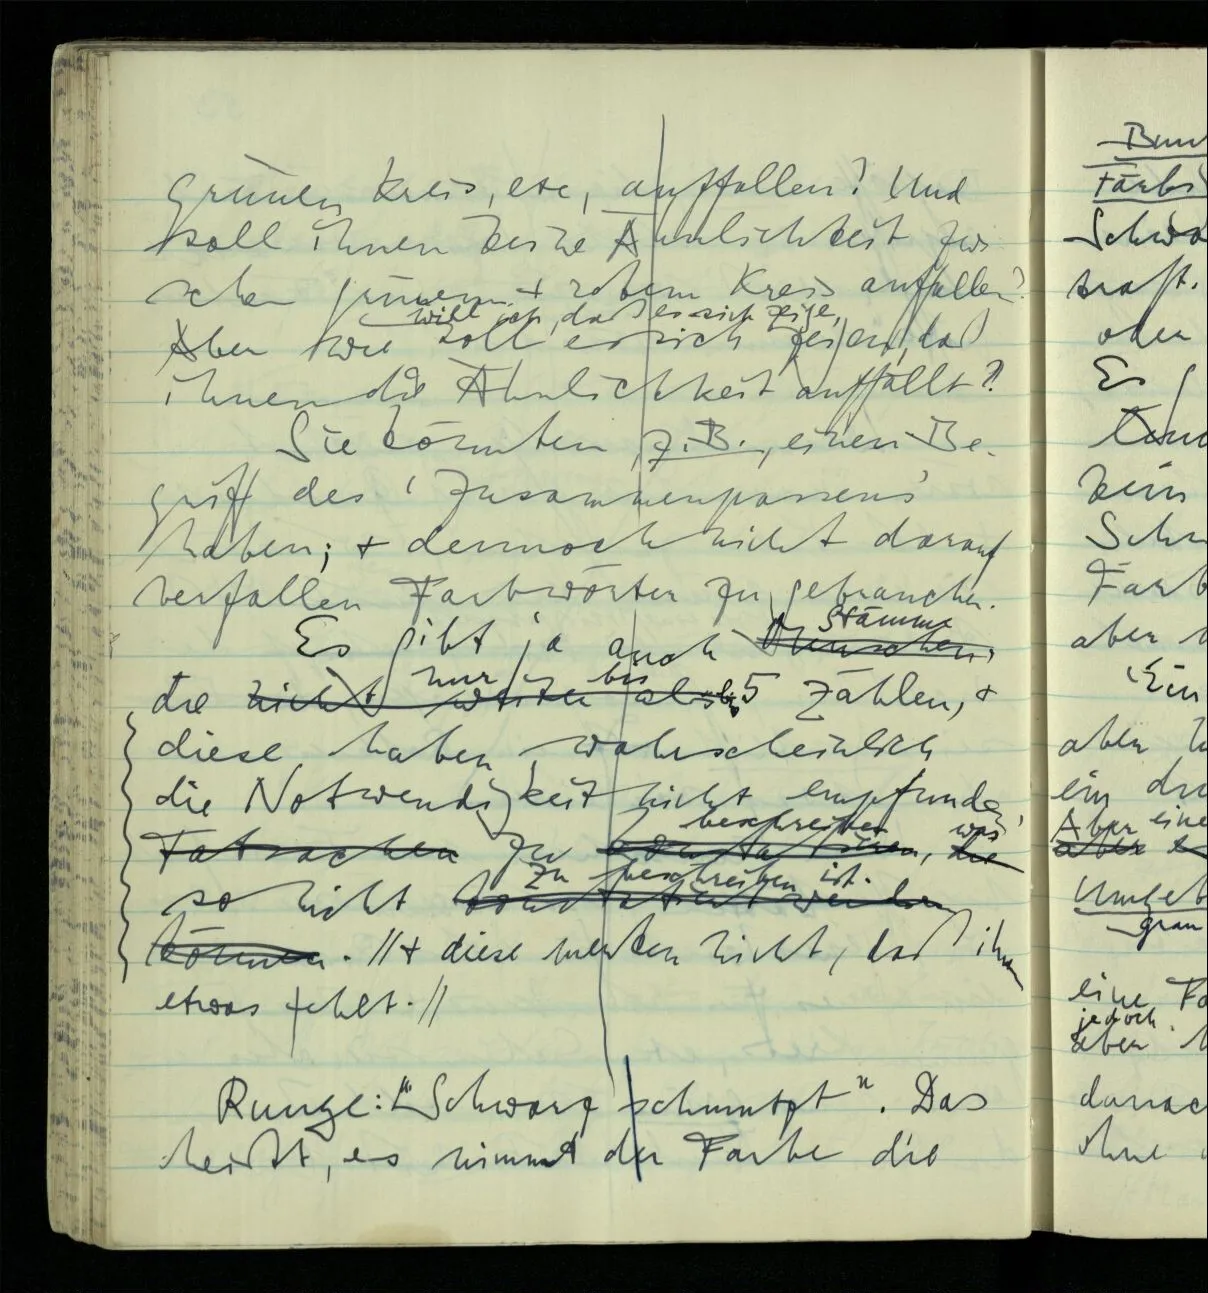 grünen Kreis, etc, auffallen? Und
soll ihnen keine Ähnlichkeit zwi
schen grünem + rotem Kreis auffallen?
will ich, daß es sich zeige,
Aber wie soll es sich zeigen, daß
ihnen die Ähnlichkeit auffällt?
Sie könnten, z.B., einen Be-
griff des 'Zusammenpassens'
haben; + dennoch nicht darauf
verfallen Farbwörter zu gebrauchen.
Stämme
Es gibt ja auch Menschen,
nur bis
die nicht weiter als bis 5 zählen, +
diese haben wahrscheinlich
die Notwendigkeit nicht empfunden,
beschreiben was
Tatsachen zu konstatieren, die
zu beschreiben ist.
so nicht konstatiert werden
können. //+ diese merken nicht, daß ihnen
etwas fehlt.//
Runge: "Schwarz schmutzt". Das
heißt, es nimmt der Farbe die
Schwa
oder
Es
kein
Farb
aber
Ein
aber
ein
Aber eine
aber
Umgeb
grau
eine Fa
jedoch
aber
danac
ihne